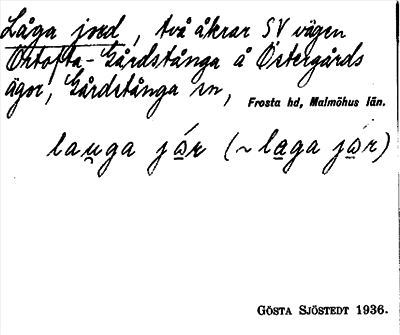 Låga jord, två åkrar SV vägen
Örtofta-Gårdstånga å Östergårds
ägor, Gårdstånga sn, Frosta hd, Malmöhus län.
lau̯ga jó̲r (~ la̲ga jó̲r)
GÖSTA SJÖSTEDT 1936.